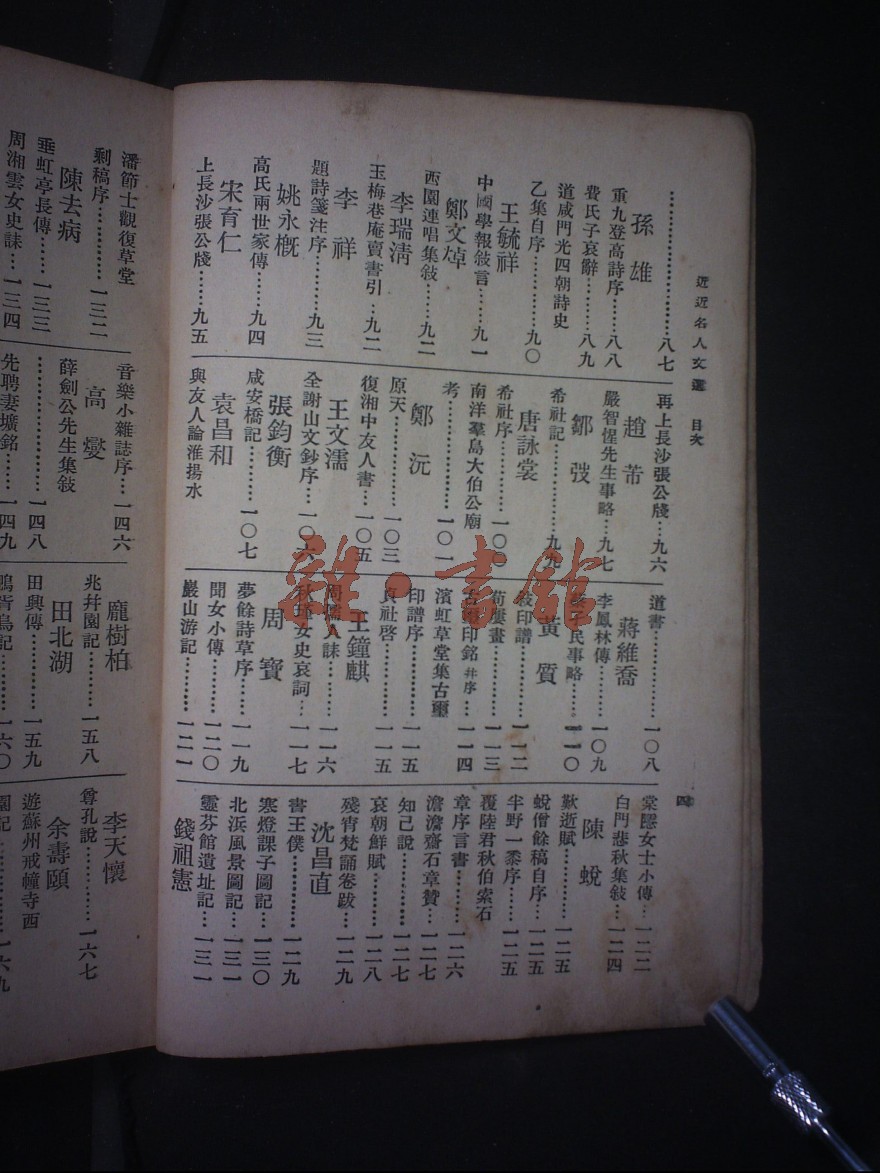 近近名人文選 目次
……………………八七
孫雄
重九登高詩序……八八
費氏子哀辭………八九
道咸門光四朝詩史
乙集自序…………九〇
王毓祥
中國學報敍言……九一
鄭文焯
西園連唱集敍……九二
李瑞淸
玉梅巷庵賣書引…九二
李祥
題詩箋注序………九三
姚永概
高氏兩世家傳……九四
宋育仁
上長沙張公牋……九五
再上長沙張公牋…九六
趙芾
嚴智惺先生事略…九七
鄒弢
希社記……………九九
唐詠裳
希社序…………一〇〇
南洋羣島大伯公廟
考………………一〇一
鄭沅
原天……………一〇三
復湘中友人書…一〇五
王文濡
全謝山文鈔序…一〇六
張鈞衡
咸安橋記………一〇七
袁昌和
與友人論淮揚水
道書……………一〇八
蔣維喬
李鳳林傳………一〇九
民事略…一一〇
黃質
印譜………一一二
荀廔畫…………一一三
印銘并序…一一四
濱虹草堂集古璽
印譜序…………一一五
貞社啓…………一一五
王鐘麒
周孺人誄………一一六
秋瑾女史哀詞…一一七
周實
夢餘詩草序……一一九
聞女小傳………一二〇
巖山游記………一二一
棠隱女士小傳…一二二
白門悲秋集敍…一二四
陳蛻
歎逝賦…………一二五
蛻僧餘稿自序…一二五
半野一黍序……一二五
覆陸君秋伯索石
章序言書………一二六
澹澹齋石章贊…一二七
知己說…………一二七
哀朝鮮賦………一二八
殘宵梵誦卷跋…一二九
沈昌直
書王僕…………一二九
寒燈課子圖記…一三〇
北浜風景圖記…一三一
靈芬館遺址記…一三一
錢祖憲
四
潘節士觀復草堂
剩稿序…………一三二
陳去病
垂虹亭長傳……一三三
周湘雲女史誄…一三四
音樂小雜誌序…一四六
高燮
薛劍公先生集敍
………………一四八
先聘妻壙銘……一四九
龐樹柏
兆丼園記………一五八
田北湖
田興傳…………一五九
鳥記………一六〇
李天懷
尊孔說…………一六七
余壽頤
遊蘇州戒幢寺西
園記……………一六九
雜·書館